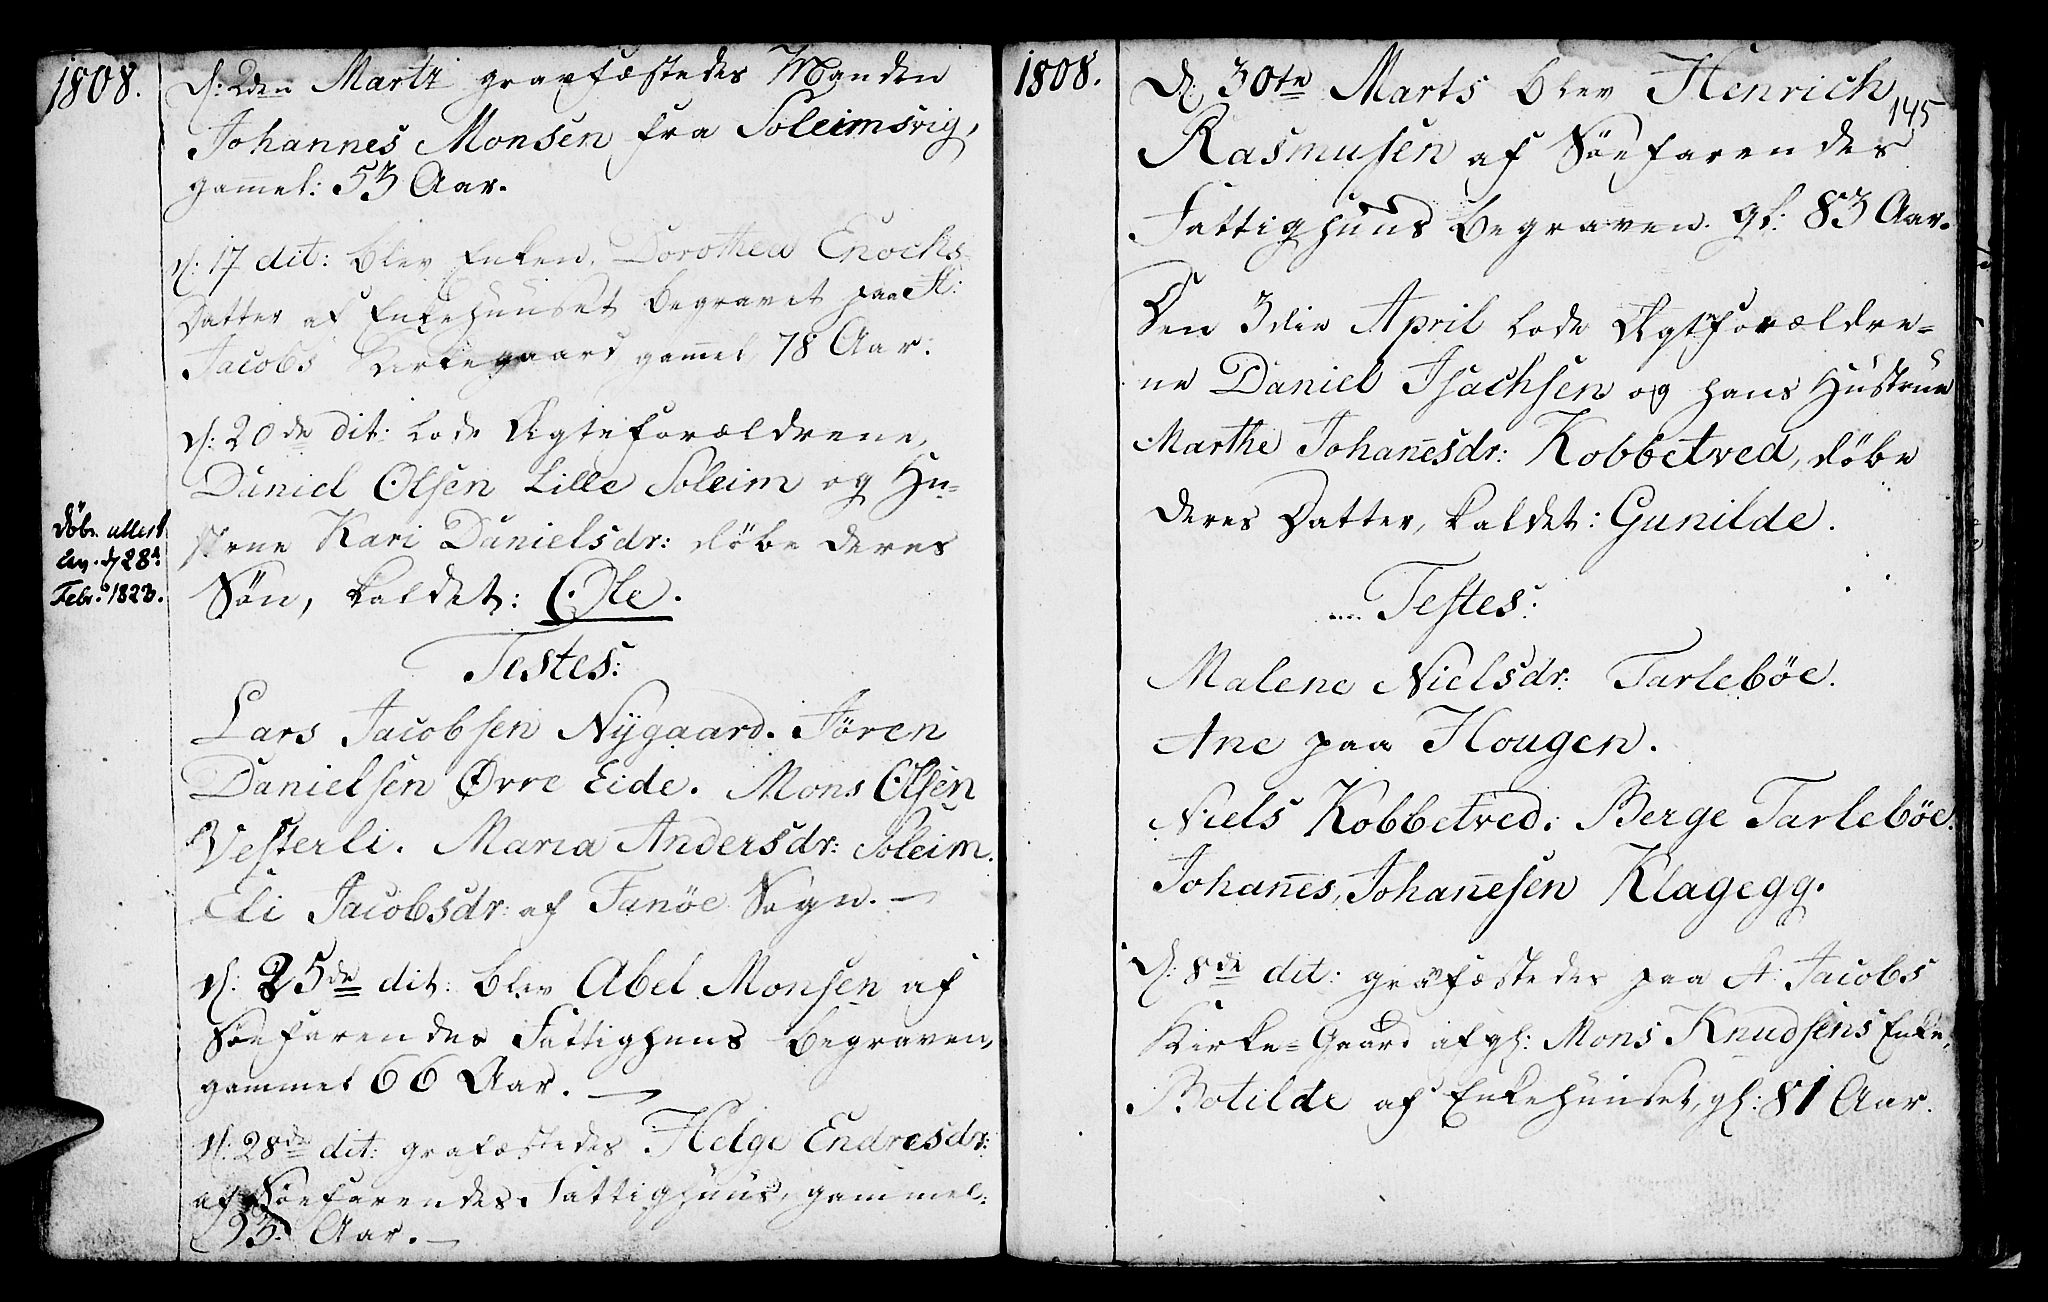 1808.
d: 2den Martz gravfæstedes Manden
Johannes Monsen fra Soleimsvig,
gam̄el: 53 Aar.
d: 17 dit: blev Enken, Dorothea Enochs
Datter af Enkehuuset begravet paa St:
Jacobs Kirkegaard gam̄el 78 Aar.
d: 20de dit: lode Ægteforældrene,
Daniel Olsen Lille Soleim og Hu-
strue Kari Danielsdr: döbe deres
Søn, kaldet: Ole.
Döbe attest
lev. d 28de
Febr. 1823.
Testes:
Lars Jacobsen Nÿgaard. Jören
Danielsen Øvre Eide. Mons Olsen
Vesterli. Maria Andersdr: Soleim.
Eli Jacobsdr: af Fanöe Sogn. —
d: 25de dit: blev Abel Monsen af
Söefarendes Fattighuus begraven,
gammel 66 Aar. —
d: 28de dit: grafæstedes Helge Endresdr:
af Söefarendes Fattighuus, gammel:
93. Aar. —
1808.
145
D: 30te Marts blev Henrich
Rasmusen af Söefarendes
Fattighuus begraven. gl: 83 Aar.
Den 3die April lode Ægteforældre=
ne Daniel Isachsen og hans Hustrue
Marthe Johan̄esdr: Kobbetved, döbe
deres Datter, kaldet: Gunilde.
Testes:
Malene Nielsdr: Tarleböe.
Ane paa Hougen.
Niels Kobbetved. Berge Tarleböe.
Johan̄es, Johan̄esen Klagegg.
D: 8de dit: gravfæstedes paa St. Jacobs
Kirke=Gaard afgl: Mons Knudsens Enke,
Botilde af Enkehuuset, gl: 81 Aar.